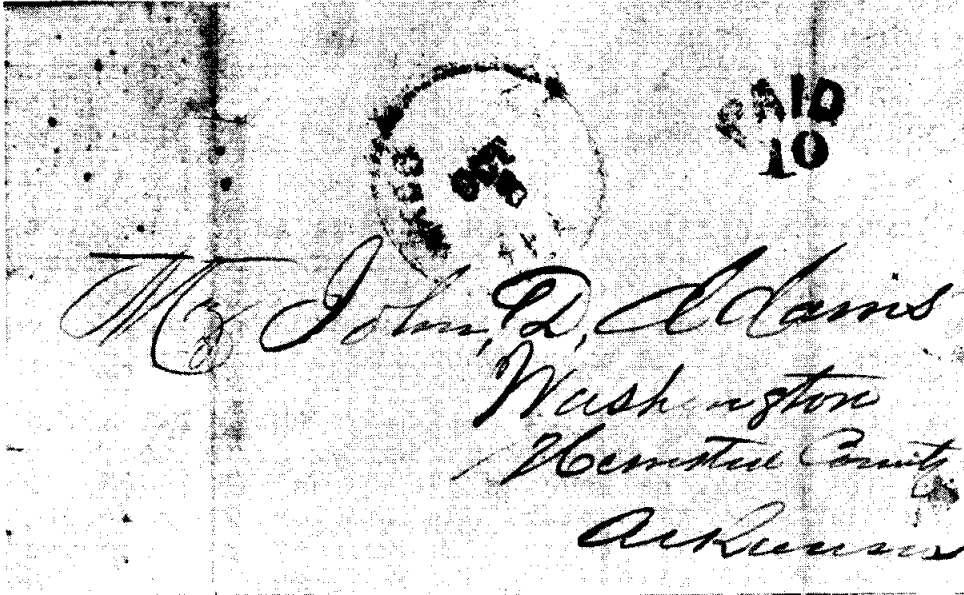 PAID
10
Mr John, D, Adams
Washington
Hemstead County
Arkansas